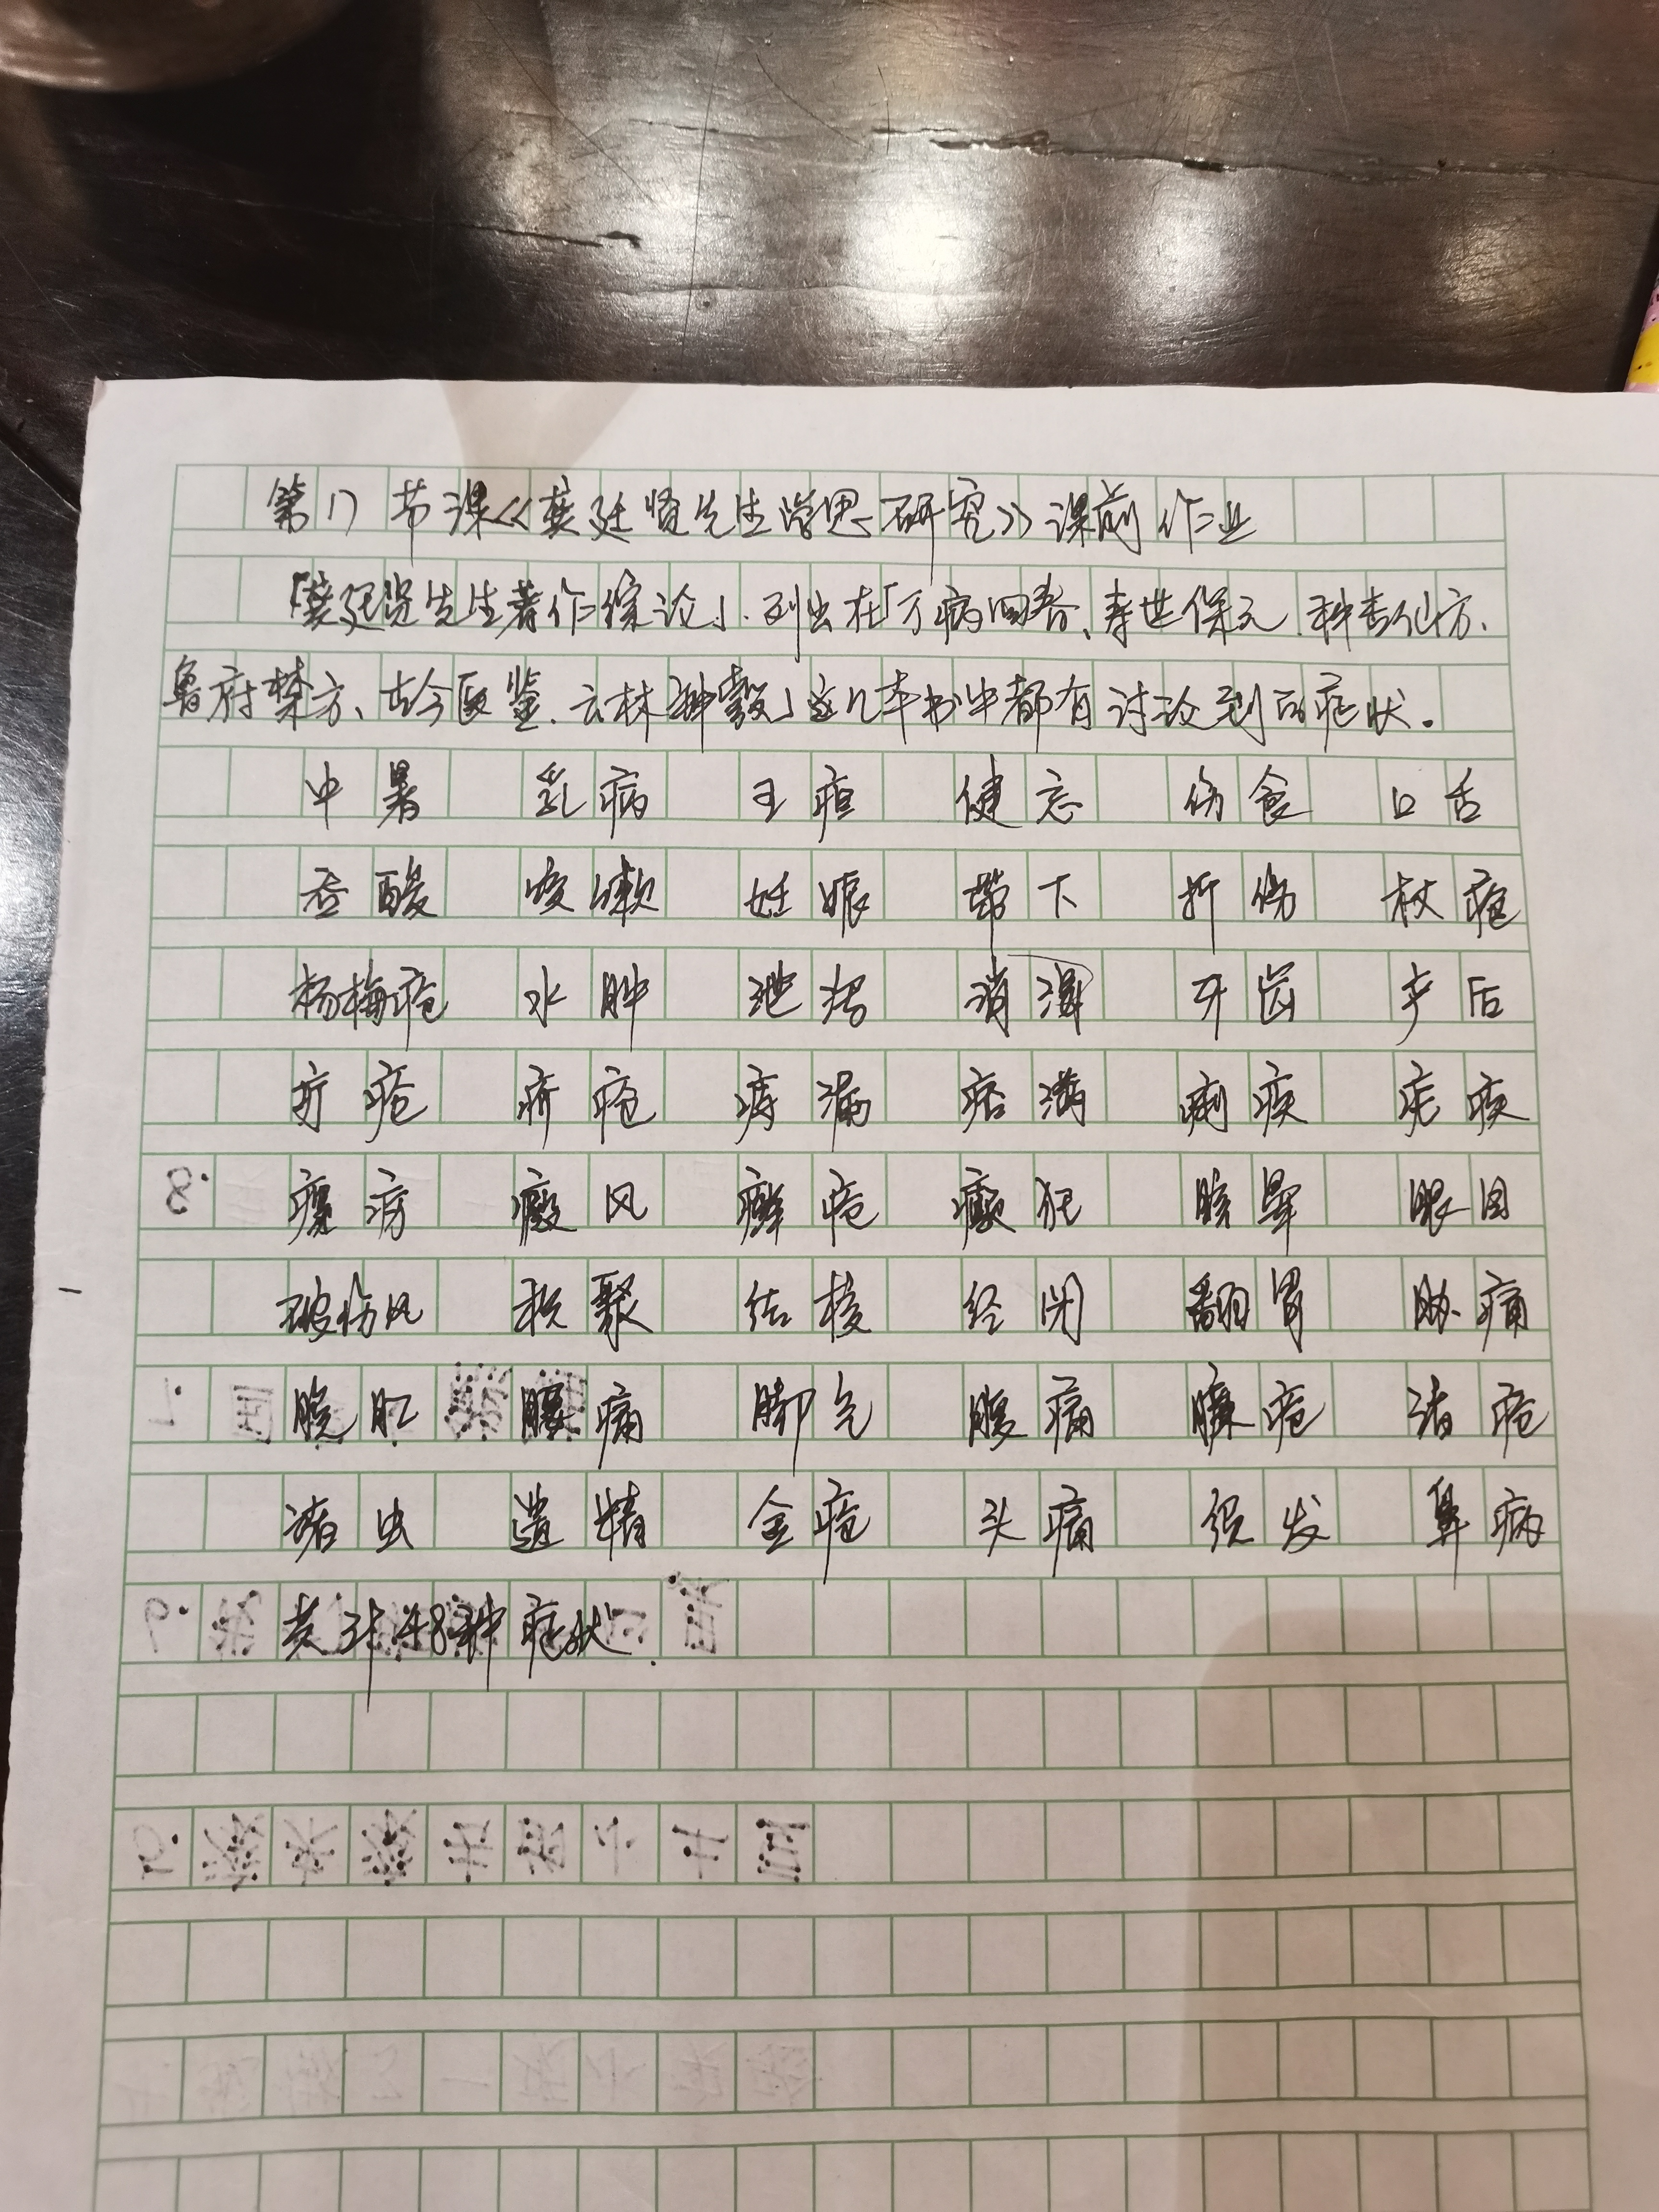 第17节课《龚廷贤先生学思研究》课前作业
「龚廷贤先生著作综论」.列出在「万病回春、寿世保元.种杏仙方、
鲁府禁方、古今医鉴.云林神彀」这几本书中都有讨论到的症状。
中暑 乳病 五疸 健忘 伤食 口舌
吞酸 咳嗽 妊娠 带下 折伤 杖疮
杨梅疮 水肿 泄泻 消渴 牙齿 产后
疔疮 疥疮 痔漏 痞满 痢疾 疟疾
8. 瘰疬 癜风 癣疮 癫狂 眩晕 眼目
破伤风 积聚 结核 经闭 翻胃 胁痛
脱肛 腰痛 脚气 腹痛 臁疮 诸疮
诸虫 遗精 金疮 头痛 须发 鼻病
共计48种症状.